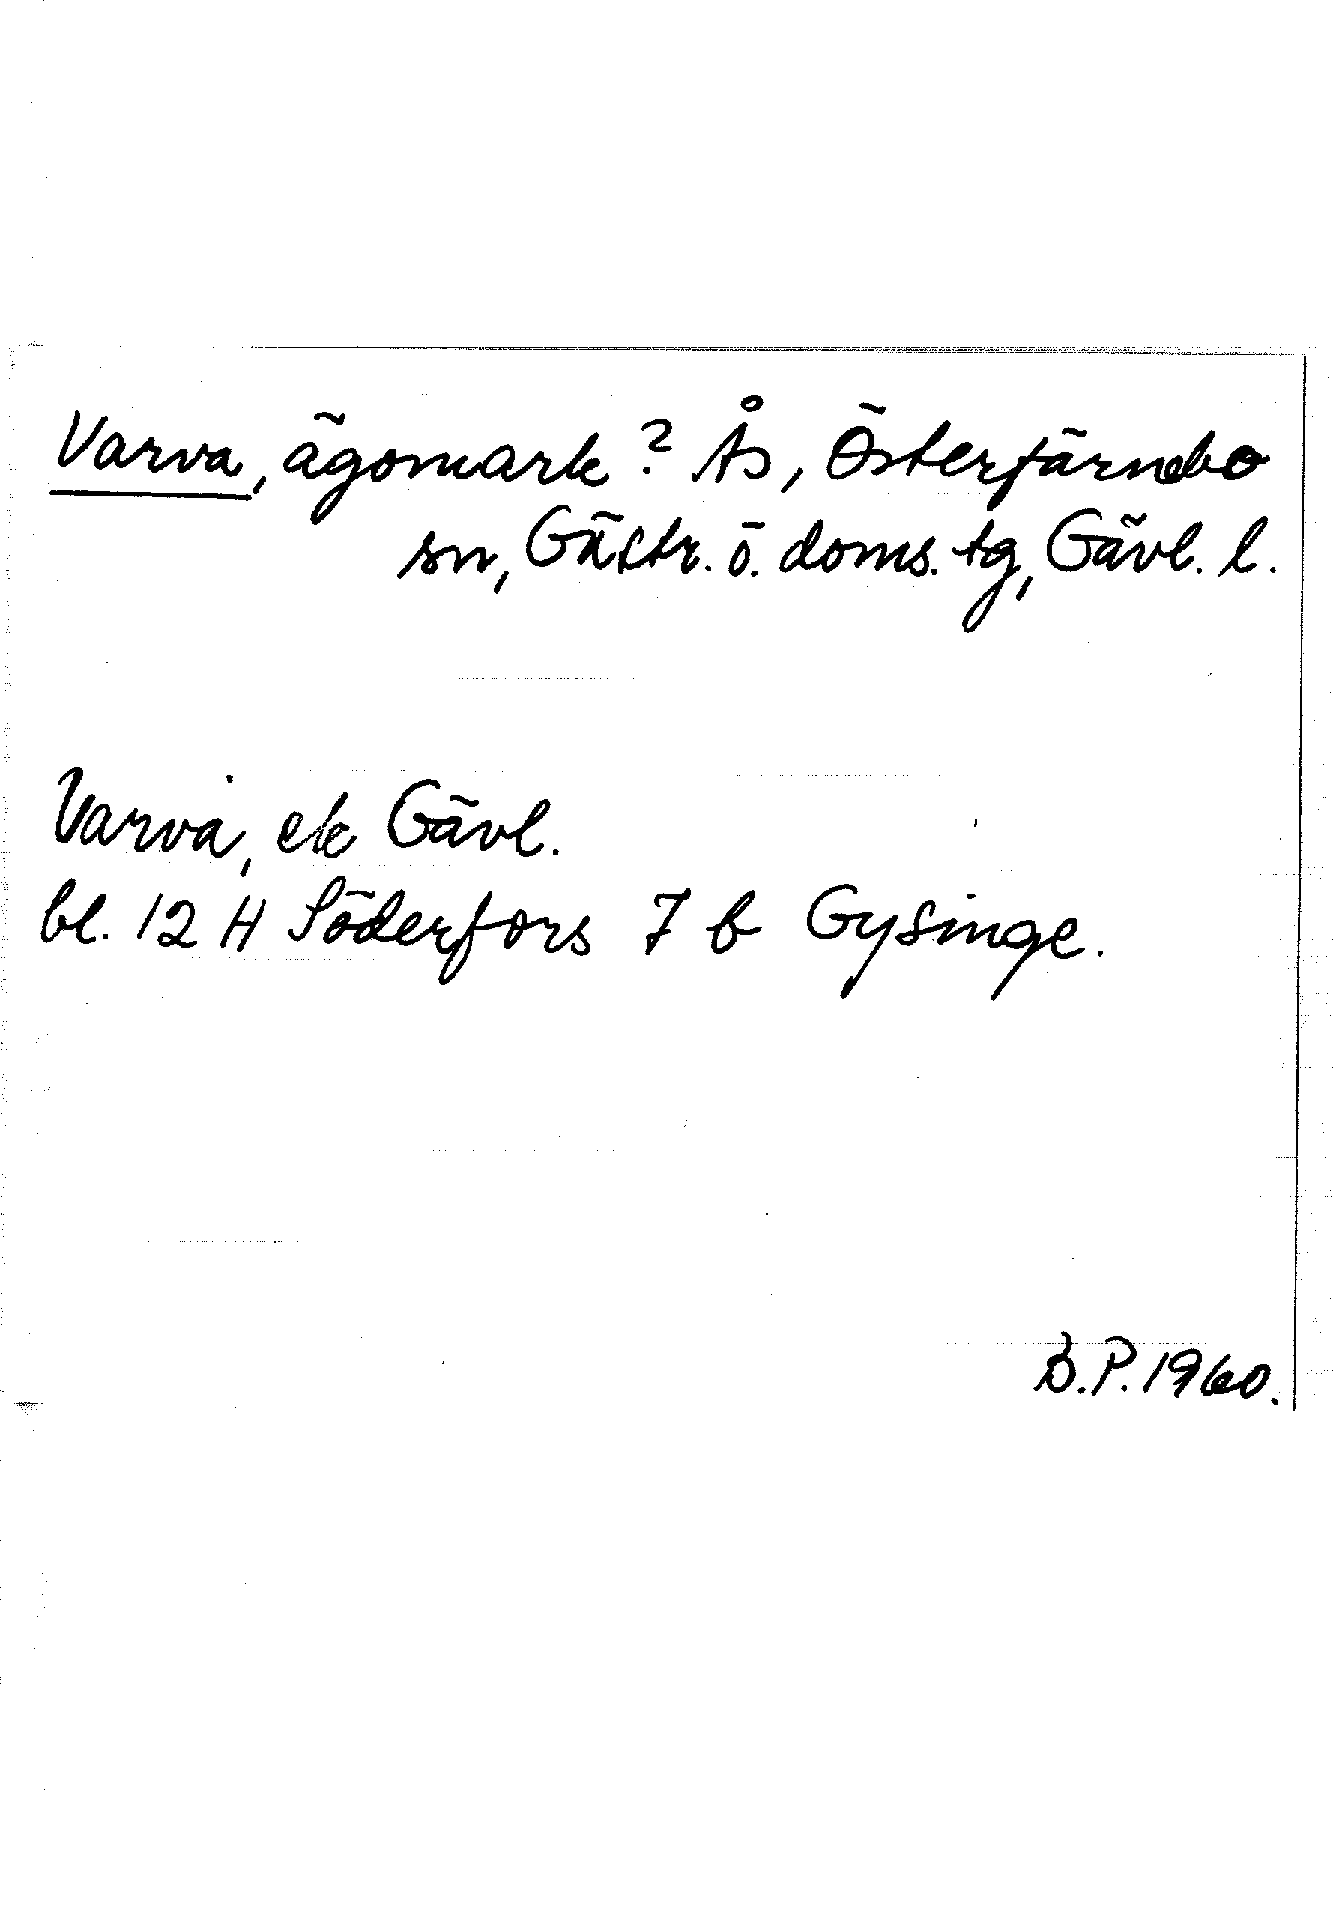 Varva, ägomark? Ås, Österfärnebo
sn, Gästr. ö. doms. tg, Gävl. l.
Varva, ek Gävl.
bl. 12 H Söderfors 7 b Gysinge.
B.P. 1960.